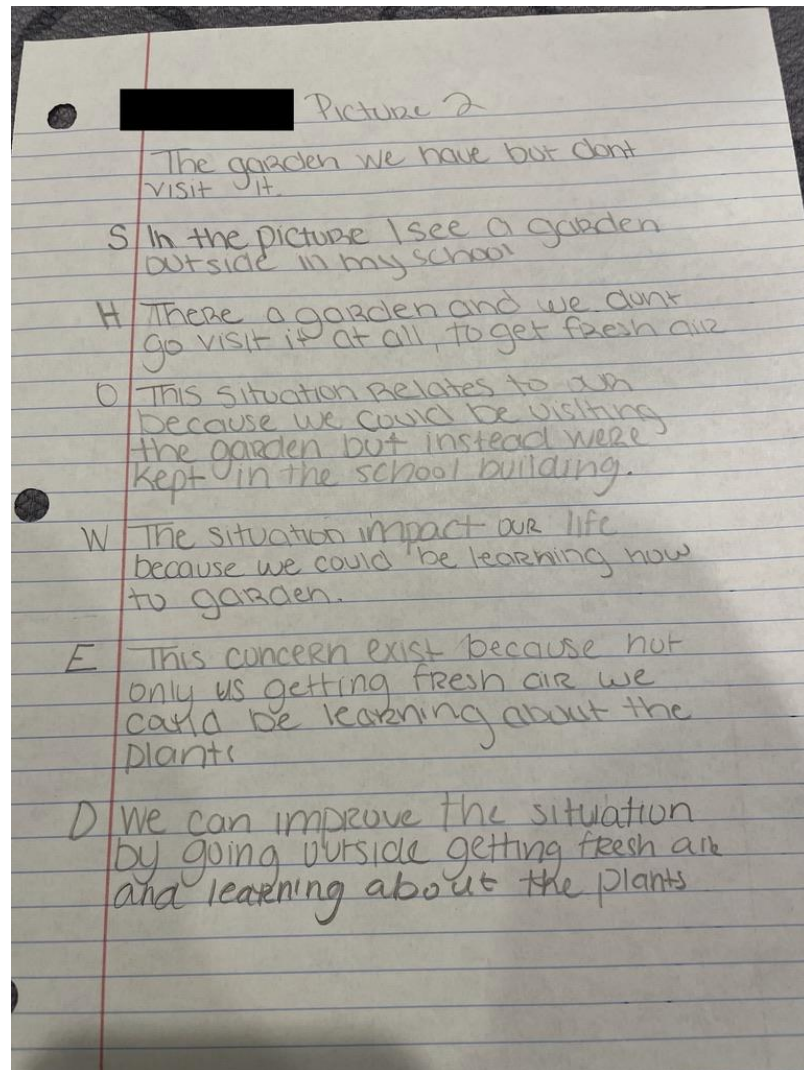 Picture 2
The garden we have but dont
visit it.
S In the picture I see a garden
outside in my school
H There a garden and we dont
go visit it at all, to get fresh air
O This situation relates to our
because we could be visiting
the garden but instead were
kept in the school building.
W The situation impact our life
because we could be learning how
to garden.
E This concern exist because not
only us getting fresh air we
could be learning about the
plants
D We can improve the situation
by going outside getting fresh air
and learning about the plants